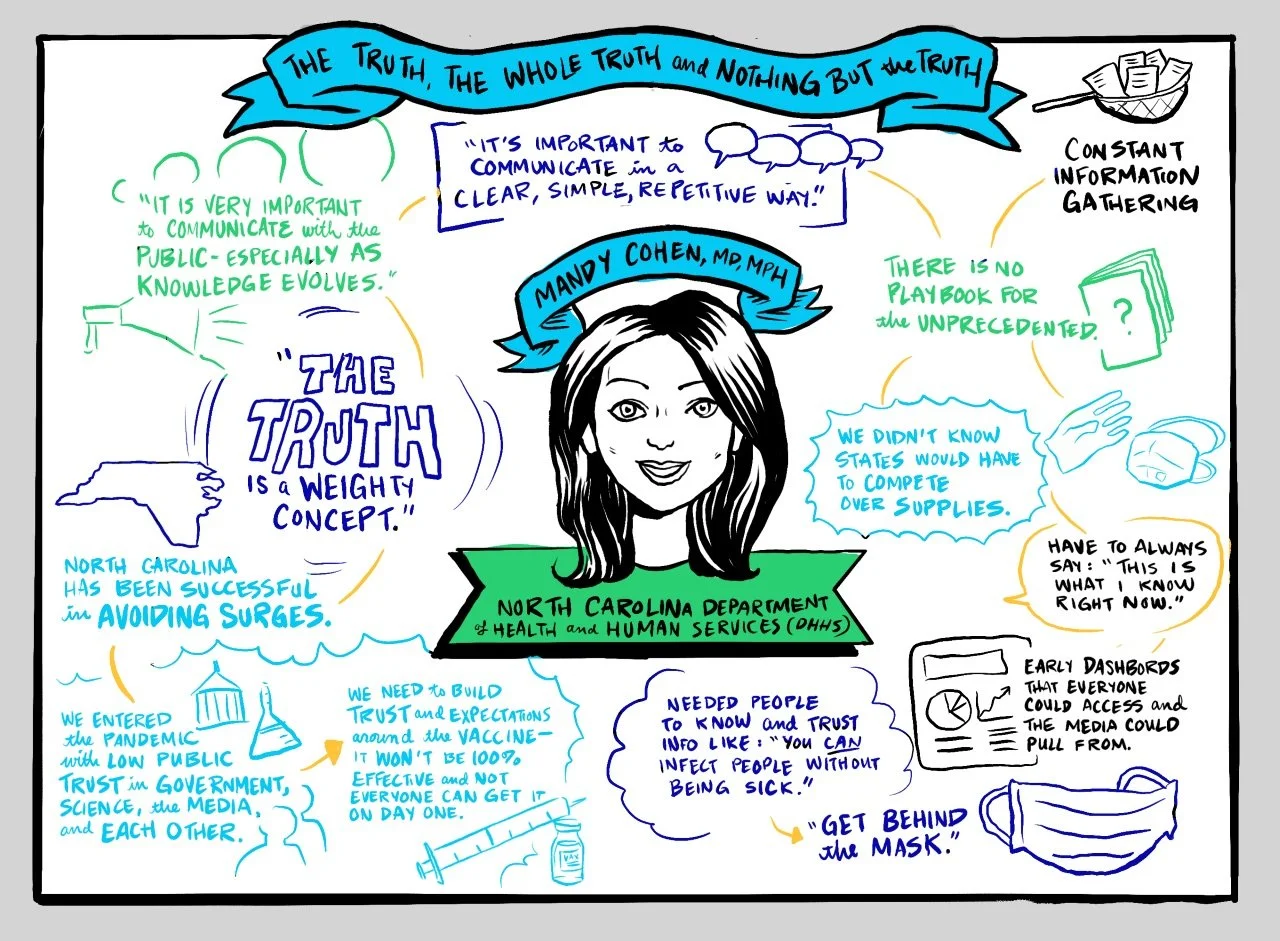 THE TRUTH, THE WHOLE TRUTH and NOTHING BUT the TRUTH
"IT'S IMPORTANT to
COMMUNICATE in a
CLEAR, SIMPLE, REPETITIVE WAY."
CONSTANT
INFORMATION
GATHERING
"IT IS VERY IMPORTANT
to COMMUNICATE with the
PUBLIC - ESPECIALLY AS
KNOWLEDGE EVOLVES."
MANDY COHEN, MD, MPH
THERE IS NO
PLAYBOOK FOR
the UNPRECEDENTED.
?
"THE
TRUTH
IS a WEIGHTY
CONCEPT."
WE DIDN'T KNOW
STATES WOULD HAVE
TO COMPETE
OVER SUPPLIES.
NORTH CAROLINA
HAS BEEN SUCCESSFUL
in AVOIDING SURGES.
HAVE TO ALWAYS
SAY: "THIS IS
WHAT I KNOW
RIGHT NOW."
NORTH CAROLINA DEPARTMENT
of HEALTH and HUMAN SERVICES (DHHS)
WE ENTERED
the PANDEMIC
with LOW PUBLIC
TRUST in GOVERNMENT,
SCIENCE, the MEDIA,
and EACH OTHER.
WE NEED to BUILD
TRUST and EXPECTATIONS
around the VACCINE—
IT WON'T BE 100%
EFFECTIVE and NOT
EVERYONE CAN GET IT
ON DAY ONE.
VAX
NEEDED PEOPLE
TO KNOW and TRUST
INFO LIKE: "YOU CAN
INFECT PEOPLE WITHOUT
BEING SICK."
EARLY DASHBORDS
THAT EVERYONE
COULD ACCESS and
THE MEDIA COULD
PULL FROM.
"GET BEHIND
the MASK."